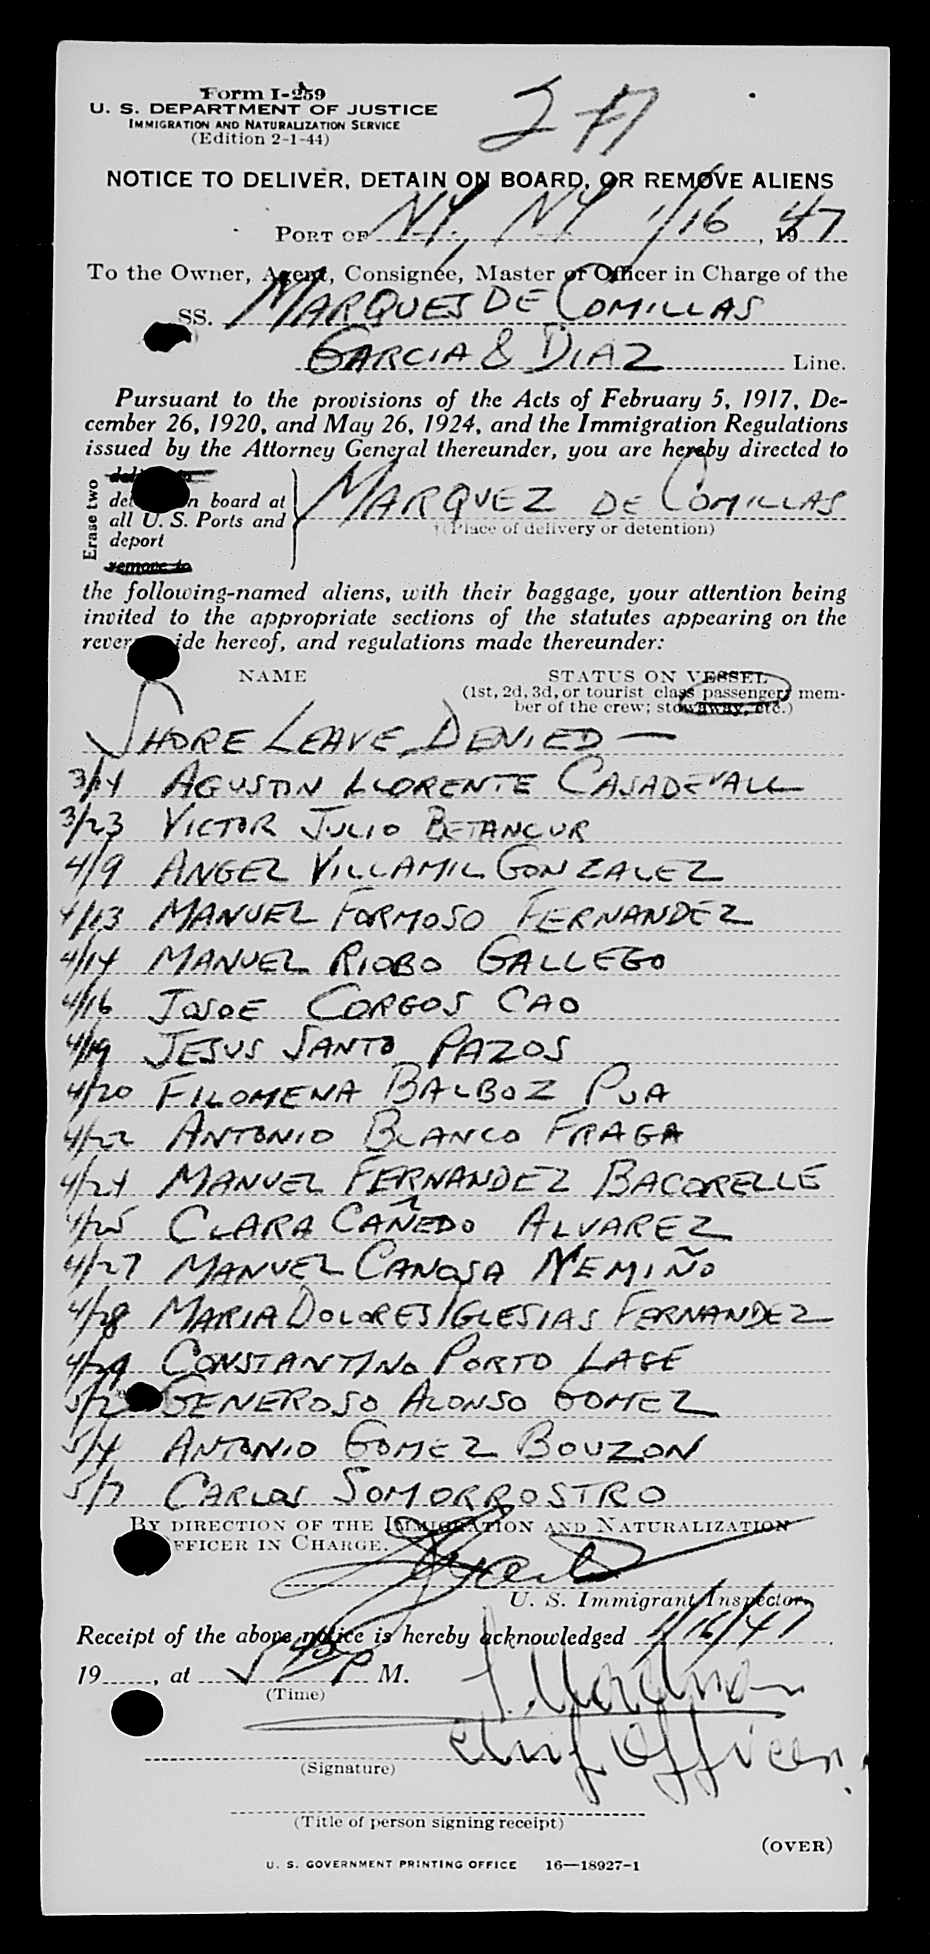 Form I-259
U. S. DEPARTMENT OF JUSTICE
IMMIGRATION AND NATURALIZATION SERVICE
(Edition 2-1-44)
NOTICE TO DELIVER, DETAIN ON BOARD, OR REMOVE ALIENS
PORT OF NY, NY 1/16, 1947
To the Owner, Agent, Consignee, Master or Officer in Charge of the
SS. MARQUES DE COMILLAS
GARCIA & DIAZ Line.
Pursuant to the provisions of the Acts of February 5, 1917, De-
cember 26, 1920, and May 26, 1924, and the Immigration Regulations
issued by the Attorney General thereunder, you are hereby directed to
Erase two
n board at MARQUEZ DE COMILLAS
all U. S. Ports and
(Place of delivery or detention)
deport
remove to
the following-named aliens, with their baggage, your attention being
invited to the appropriate sections of the statutes appearing on the
rever ide hereof, and regulations made thereunder:
NAME STATUS ON VESSEL
(1st, 2d, 3d, or tourist class passenger; mem-
ber of the crew; stowaway, etc.)
SHORE LEAVE DENIED —
3/14 AGUSTIN LLORENTE CASADEVALL
3/23 VICTOR JULIO BETANCUR
4/9 ANGEL VILLAMIL GONZALEZ
4/13 MANUEL FORMOSO FERNANDEZ
4/14 MANUEL RIOBO GALLEGO
4/16 JOSOE CORGOS CAO
4/19 JESUS SANTO PAZOS
4/20 FILOMENA BALBOZ PUA
4/22 ANTONIO BLANCO FRAGA
4/24 MANUEL FERNANDEZ BACORELLE
4/25 CLARA CAÑEDO ALVAREZ
4/27 MANUEL CANOSA NEMIÑO
4/28 MARIA DOLORES IGLESIAS FERNANDEZ
4/29 CONSTANTINO PORTO LAGE
5/2 GENEROSO ALONSO GOMEZ
5/4 ANTONIO GOMEZ BOUZON
5/7 CARLOS SOMORROSTRO
BY DIRECTION OF THE IMMIGRATION AND NATURALIZATION
FFICER IN CHARGE.
U. S. Immigrant Inspector.
Receipt of the above notice is hereby acknowledged 1/16/47
19 , at P M.
(Time)
Chief Officer.
(Signature)
(Title of person signing receipt)
(OVER)
U. S. GOVERNMENT PRINTING OFFICE 16—18927-1